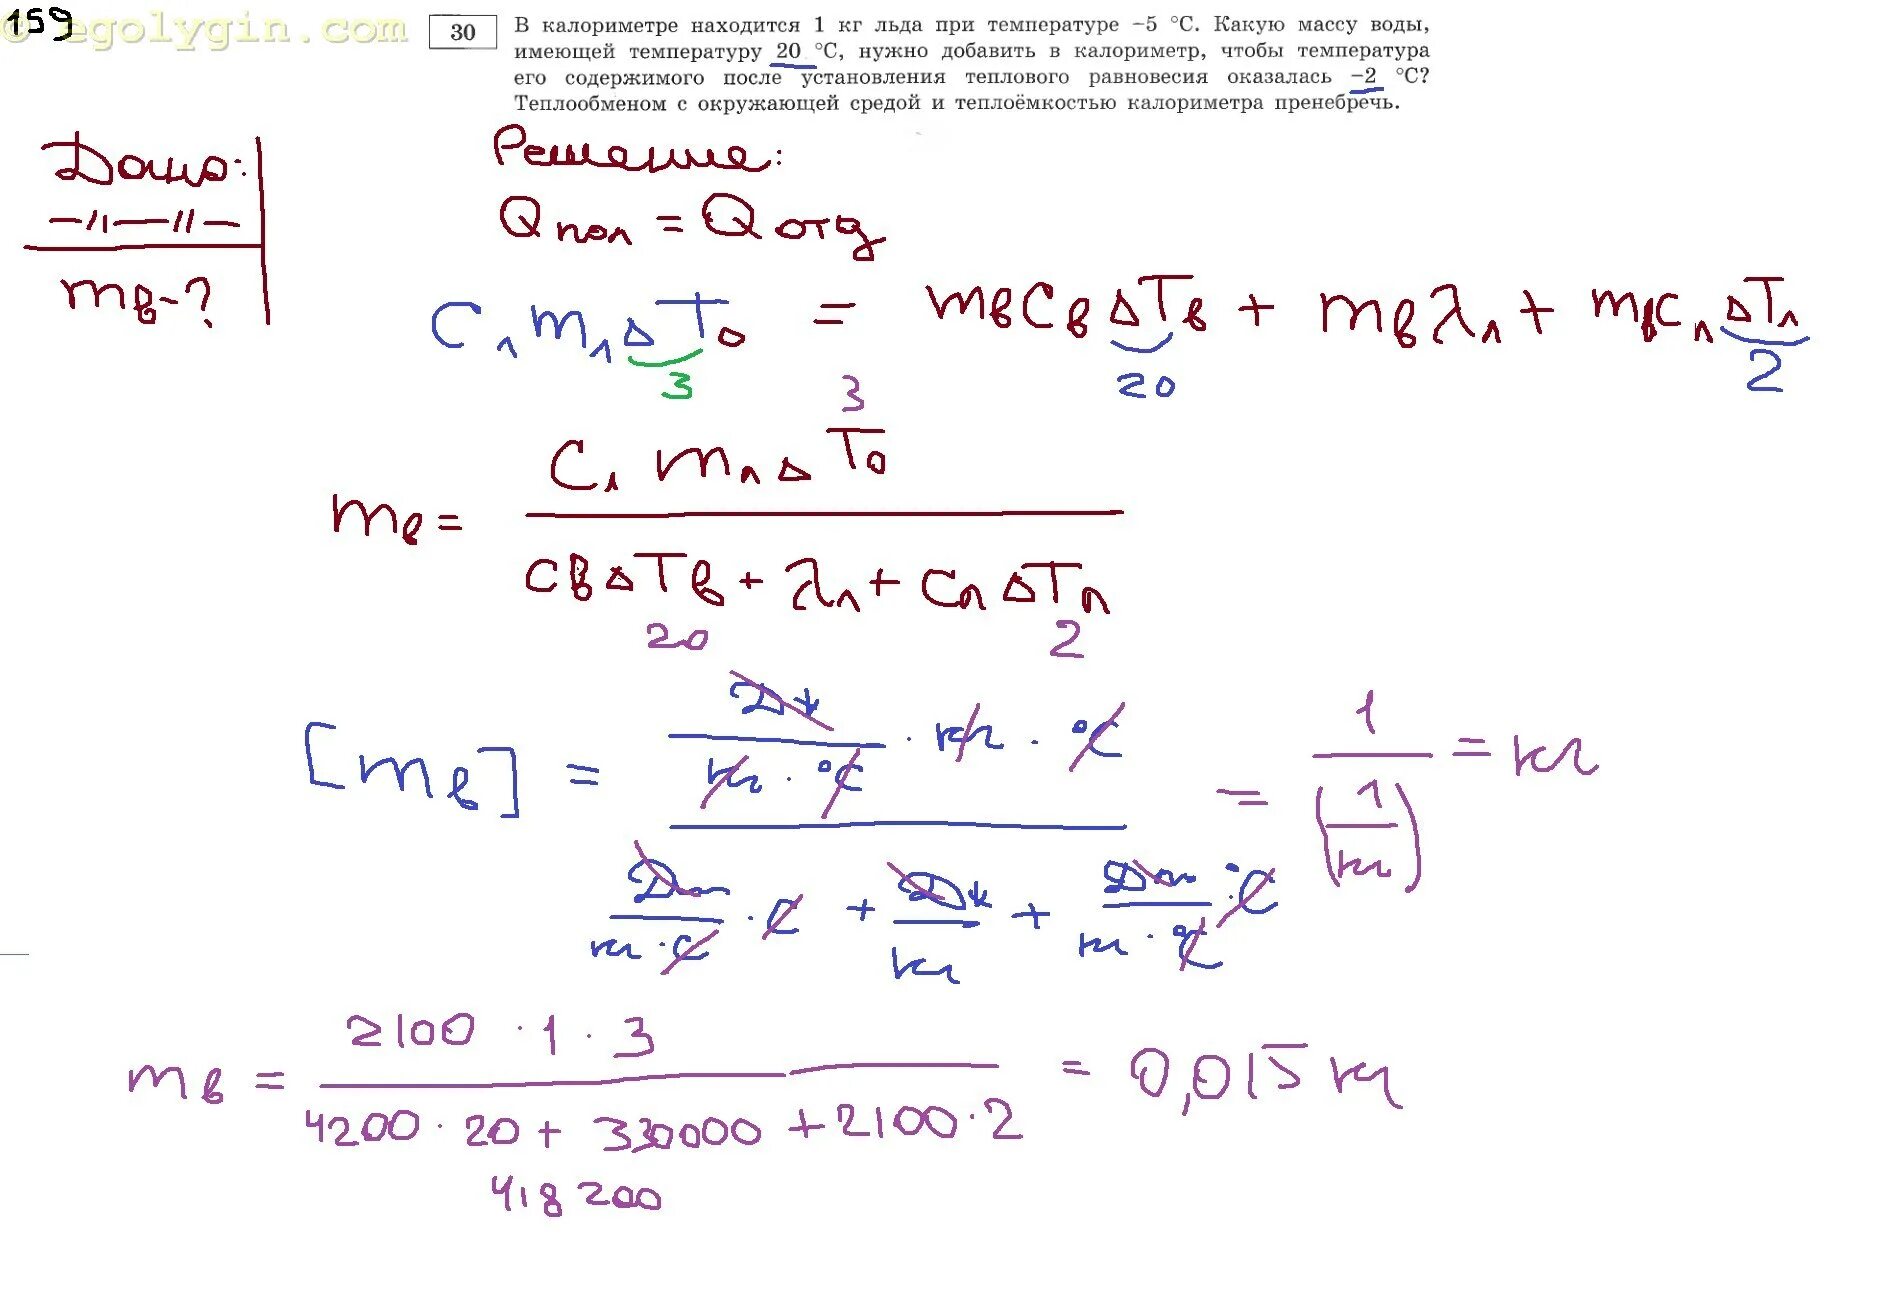 159
© egolygin.com
30
В калориметре находится 1 кг льда при температуре −5 °С. Какую массу воды,
имеющей температуру 20 °С, нужно добавить в калориметр, чтобы температура
его содержимого после установления теплового равновесия оказалась −2 °С?
Теплообменом с окружающей средой и теплоёмкостью калориметра пренебречь.
Дано:
—//—//—
mв-?
Решение:
Qпол = Qотд
CлmлΔTо = mвCвΔTв + mвλл + mвCлΔTл
3 20 2
3
Cл mл ΔTо
mв =
CвΔTв + λл + CлΔTл
20 2
[mв] = Дж / (кг · °C) · кг · °C / (Дж / (кг · C) · C + Дж / кг + Дж / (кг · °C) · °C) = 1 / (1 / кг) = кг
2100 · 1 · 3
mв = = 0,015 кг
4200 · 20 + 330000 + 2100 · 2
418200